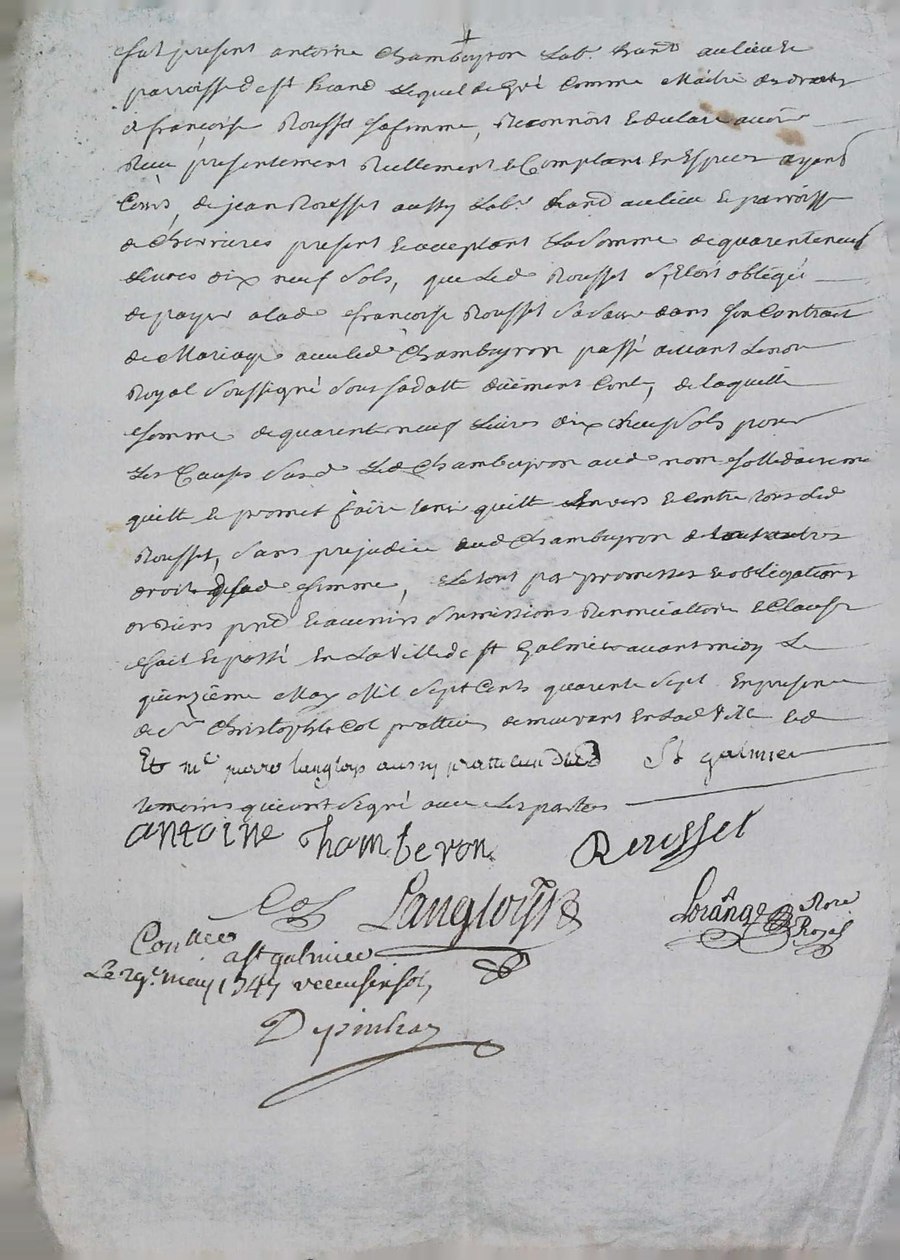 fut present antoine Chambeyron Lab.r hand au lieu &
parroisse de st heand Lequel de Gré Comme Maitre des droits
de francoise Rousset sa femme, Reconnoit & declare avoir
Reçu presentement Reellement & Comptant En Especes ayant
Cours, de jean Rousset aussy Lab.r hand au lieu & parroisse
de Chevrieres present & acceptant La somme de quarente neuf
Livres dix neuf sols, que Led Rousset s'Etoit obligé
de payer a lad francoise Rousset sa sœur dans son Contrat
de Mariage avec led Chambeyron passé devant Le no.re
Royal soussigné sous sa datte deüement Cont, de laquelle
somme de quarente neuf Livres dix neuf sols pour
Les Causes susd Led Chambeyron aud nom sollidairement
quitte & promet faire tenir quitte Envers & Contre tous Led
Rousset, sans prejudice aud Chambeyron de tout autres
droits de sad femme, & le tout par promesses & obligations
de biens pnts & avenirs soumissions Renonciations & Clauses
fait & passé En La Ville de st Galmier avant midy Le
quinzieme May Mil Sept Cents quarente Sept En presence
de s.r Christophle Col pratticien demeurant En Lad Ville
Et m.e pierre langloys aussy pratticien dud St galmier
temoins qui ont signé avec Les parties
antoine Chamberon Rousset
Col Langloys Lorange No.re Royal
Con.llee a st galmier
Le 29.e may 1747